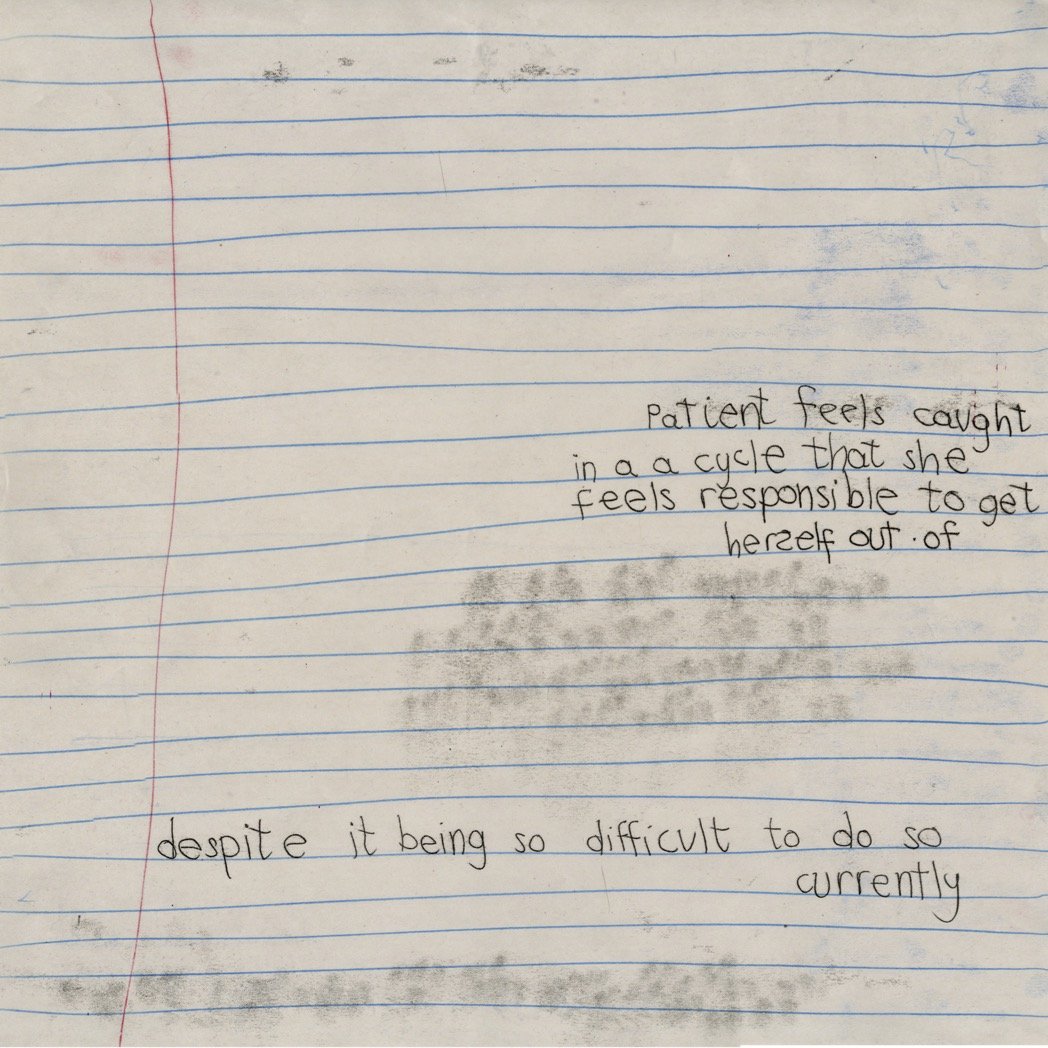 Patient feels caught
in a a cycle that she
feels responsible to get
herself out of
despite it being so difficult to do so
currently